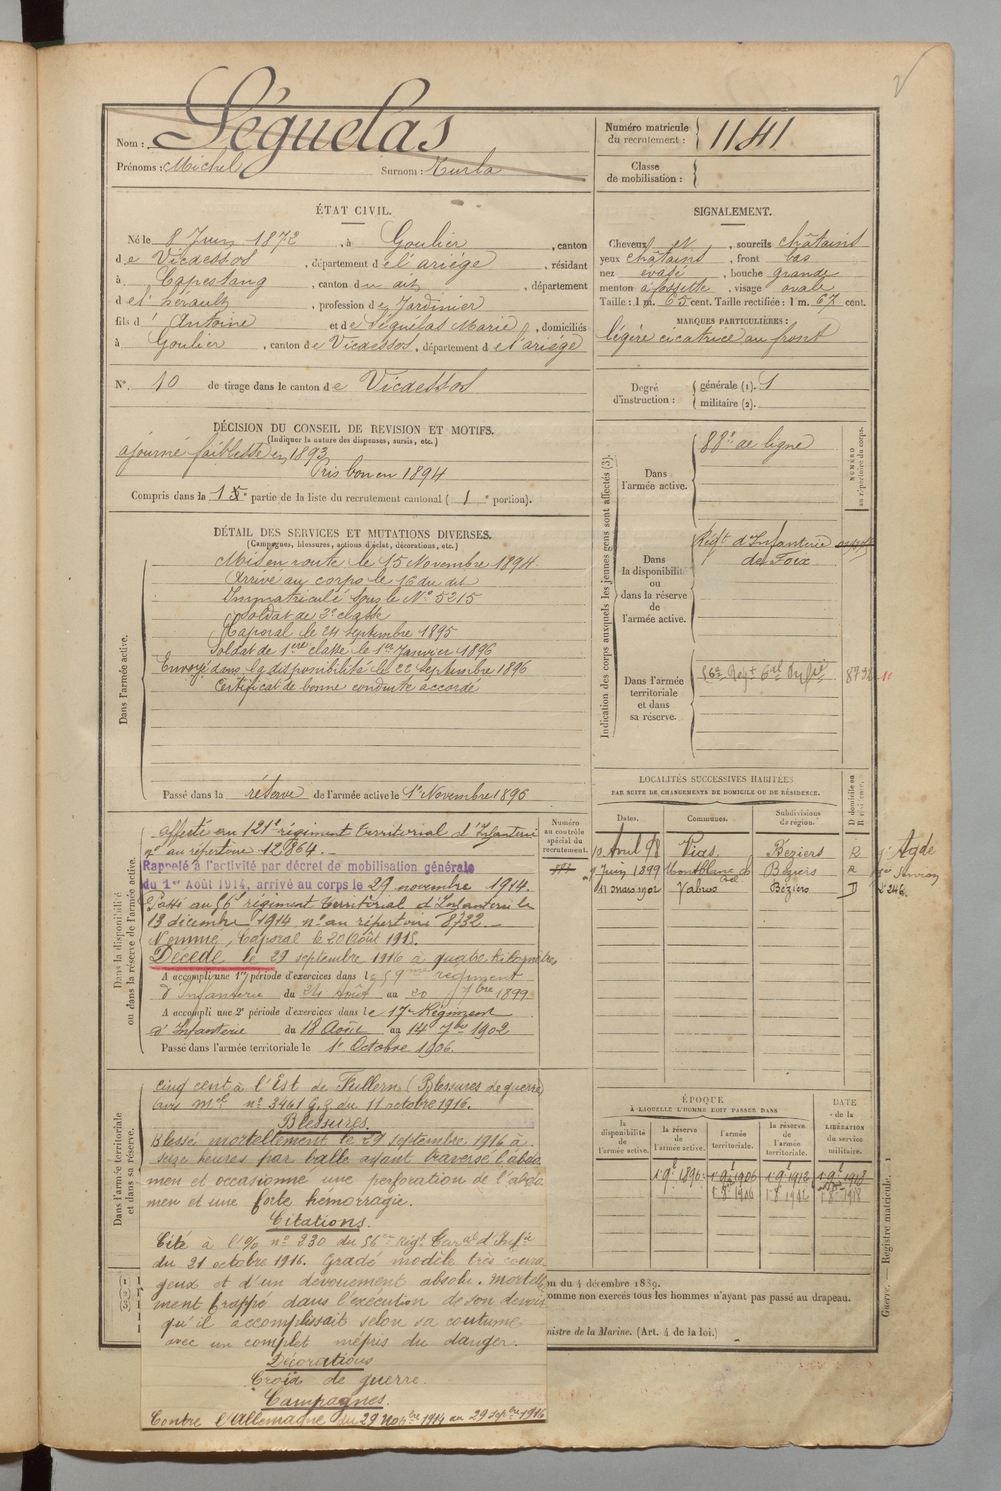 Nom : Séguélas
Prénoms : Michel Surnom : Hurla
Numéro matricule
du recrutement : 1141
Classe
de mobilisation :
ÉTAT CIVIL.
Né le 8 Juin 1872, à Goulier, canton
de Vicdessos, département de l'ariége, résidant
à Capestang, canton du dit, département
de l'hérault, profession de Jardinier
fils d' Antoine et de Séguélas Marie, domiciliés
à Goulier, canton de Vicdessos, département de l'ariége
N° 10 de tirage dans le canton de Vicdessos
SIGNALEMENT.
Cheveux et, sourcils châtains
yeux châtains, front bas
nez évasé, bouche grande
menton à fossette, visage ovale
Taille : 1 m. 65 cent. Taille rectifiée : 1 m. 67 cent.
MARQUES PARTICULIÈRES :
légère cicatrice au front
Degré
d'instruction :
générale (1). 1
militaire (2).
DÉCISION DU CONSEIL DE REVISION ET MOTIFS.
(Indiquer la nature des dispenses, sursis, etc.)
ajourné faiblesse en 1893
Pris bon en 1894
Compris dans la 1e partie de la liste du recrutement cantonal ( 1 e portion).
DÉTAIL DES SERVICES ET MUTATIONS DIVERSES.
(Campagnes, blessures, actions d'éclat, décorations, etc.)
Dans l'armée active.
Mis en route le 15 Novembre 1894
Arrivé au corps le 16 du dit
Immatriculé sous le N° 5215
Soldat de 2e classe
Caporal le 24 septembre 1895
Soldat de 1ere classe le 1er Janvier 1896
Envoyé dans la disponibilité le 22 Septembre 1896
Certificat de bonne conduite accordé
Passé dans la réserve de l'armée active le 1r Novembre 1896
Indication des corps auxquels les jeunes gens sont affectés (3).
NUMÉRO
au répertoire du corps.
Dans
l'armée active.
88e de ligne
Dans
la disponibilité
ou
dans la réserve
de
l'armée active.
Régt d'Infanterie
de Foix
Dans l'armée
territoriale
et dans
sa réserve.
8732
LOCALITÉS SUCCESSIVES HABITÉES
PAR SUITE DE CHANGEMENTS DE DOMICILE OU DE RÉSIDENCE.
Dates. Communes. Subdivisions de région. D domicile ou R résidence.
10 Avril 98 Vias Béziers R Agde
9 Juin 1899 Montblanc Béziers R
11 mars 1902 Vabres Béziers D
Dans la disponibilité
ou dans la réserve de l'armée active.
Numéro
au contrôle
spécial du
recrutement.
affecté au 121e régiment territorial d'Infanterie
n° au répertoire 12864.
Rappelé à l'activité par décret de mobilisation générale
du 1er Août 1914, arrivé au corps le 29 novembre 1914.
Passé au 56e régiment territorial d'Infanterie le
13 décembre 1914 n° au répertoire 8732.
Nommé Caporal le 20 août 1915.
Décédé le 29 septembre 1916 à quatre kilomètres
A accompli une 1re période d'exercices dans le 59me régiment
d'Infanterie du 24 Août au 20 7bre 1899
A accompli une 2e période d'exercices dans le 17e Régiment
d'Infanterie du 18 Août au 14 7bre 1902
Passé dans l'armée territoriale le 1r Octobre 1906.
Dans l'armée territoriale
et dans sa réserve.
cinq cent à l'Est de Fullern (Blessures de guerre)
Avis mel n° 3461 G.Z du 11 octobre 1916.
Blessures.
Blessé mortellement le 29 septembre 1916 à
seize heures par balle ayant traversé l'abdo
men et occasionné une perforation de l'abdo
men et une forte hémorragie.
Citations.
Cité à l'O/ n° 230 du 56e Régt Teral d'Infie
du 21 octobre 1916. Gradé modèle très coura
geux et d'un dévouement absolu. Mortelle
ment frappé dans l'exécution de son devoir
qu'il accomplissait selon sa coutume
avec un complet mépris du danger.
Décorations
Croix de guerre.
Campagnes.
Contre l'Allemagne du 29 Novbre 1914 au 29 Septbre 1916
ÉPOQUE
À LAQUELLE L'HOMME DOIT PASSER DANS
la disponibilité de l'armée active. la réserve de l'armée active. l'armée territoriale. la réserve de l'armée territoriale.
DATE
de la
LIBÉRATION
du service
militaire.
1 9e 1896 1 9e 1906 1 9e 1912 1 9e 1918
1 8 1906 1 8 1912 1 8 1918
on du 4 décembre 1889.
omme non exercés tous les hommes n'ayant pas passé au drapeau.
nistre de la Marine. (Art. 4 de la loi.)
Guerre. — Registre matricule. — 1